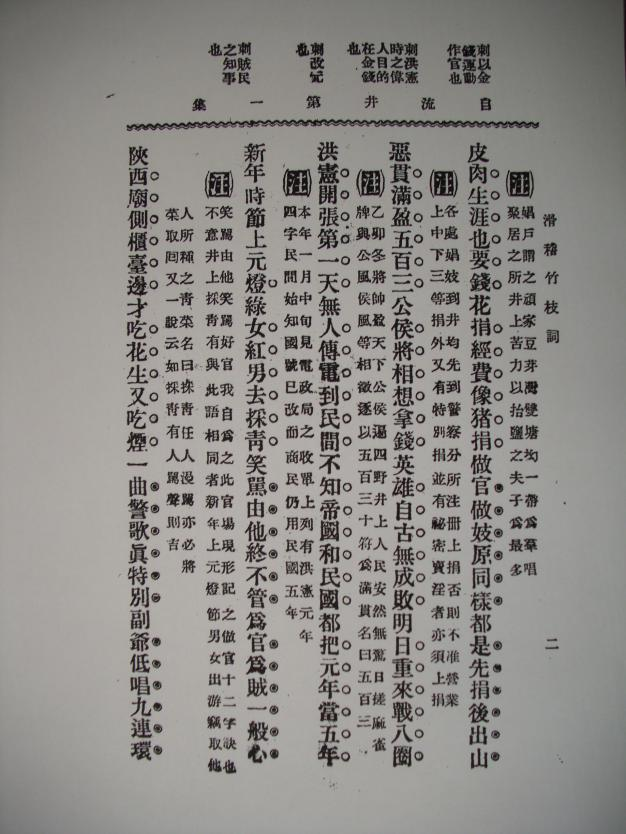 滑稽竹枝詞
二
自流井第一集
刺以金
錢運動
作官也
刺洪憲
時之偉
人目的
在金錢
也
刺改元
也
刺賊民
之知事
也
注
娼戶謂之頑家豆芽灣雙塘坳一帶為羣唱
聚居之所井上苦力以抬鹽之夫子為最多
皮肉生涯也要錢花捐經費像猪捐做官做妓原同樣都是先捐後出山
注
各處娼妓到井均先到警察分所注冊上捐否則不准營業
上中下三等捐外又有特別捐並有祕密賣淫者亦須上捐
惡貫滿盈五百三公侯將相想拿錢英雄自古無成敗明日重來戰八圈
注
乙卯冬將帥盈天下公侯遍四野井上人民安然無驚日搓麻雀
牌與公風侯風等相徵逐以五百三十符為滿貫名曰五百三
洪憲開張第一天無人傳電到民間不知帝國和民國都把元年當五年
注
本年一月中旬見電政局之收單上列有洪憲元年
四字民間始知國號已改而商民仍用民國五年
新年時節上元燈綠女紅男去採靑笑罵由他終不管為官為賊一般心
注
笑罵由他笑罵好官我自為之此官場現形記之做官十二字訣也
不意井上採靑有與此語相同者新年上元燈節男女出游竊取他
人所種之靑菜名曰採靑任人漫罵亦必將
菜取回又一說云如採靑有人罵聲則吉
陝西廟側櫃臺邊才吃花生又吃煙一曲警歌眞特別副爺低唱九連環